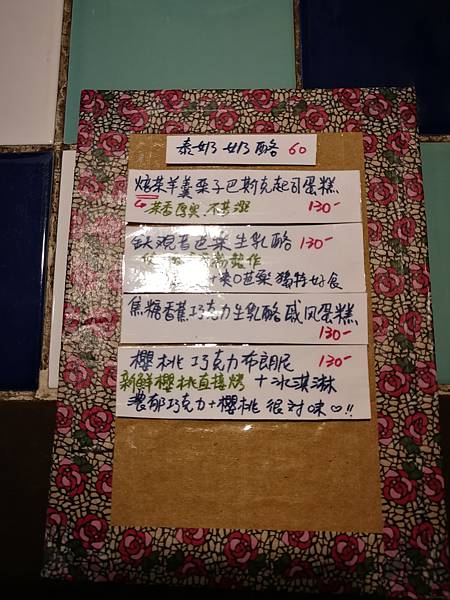 泰奶奶酪 60
焙茶羊羹栗子巴斯克起司蛋糕
茶香厚实、不苦澀 130-
鐵觀音芭樂生乳酪 130-
製作
芭樂 獨特好食
焦糖香蕉巧克力生乳酪戚風蛋糕
130-
櫻桃巧克力布朗尼 130-
新鮮櫻桃直接烤 + 冰淇淋
濃郁巧克力+櫻桃 很对味♡!!